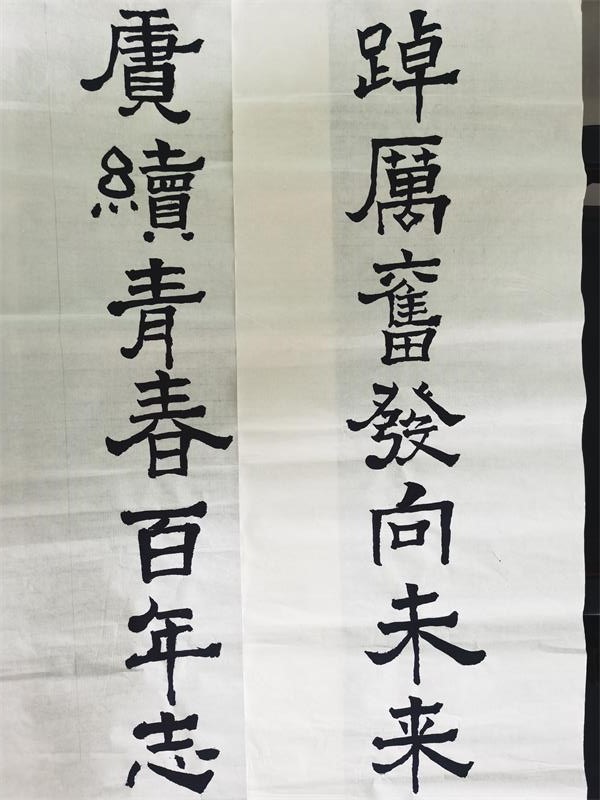 踔厲奮發向未来
賡續青春百年志